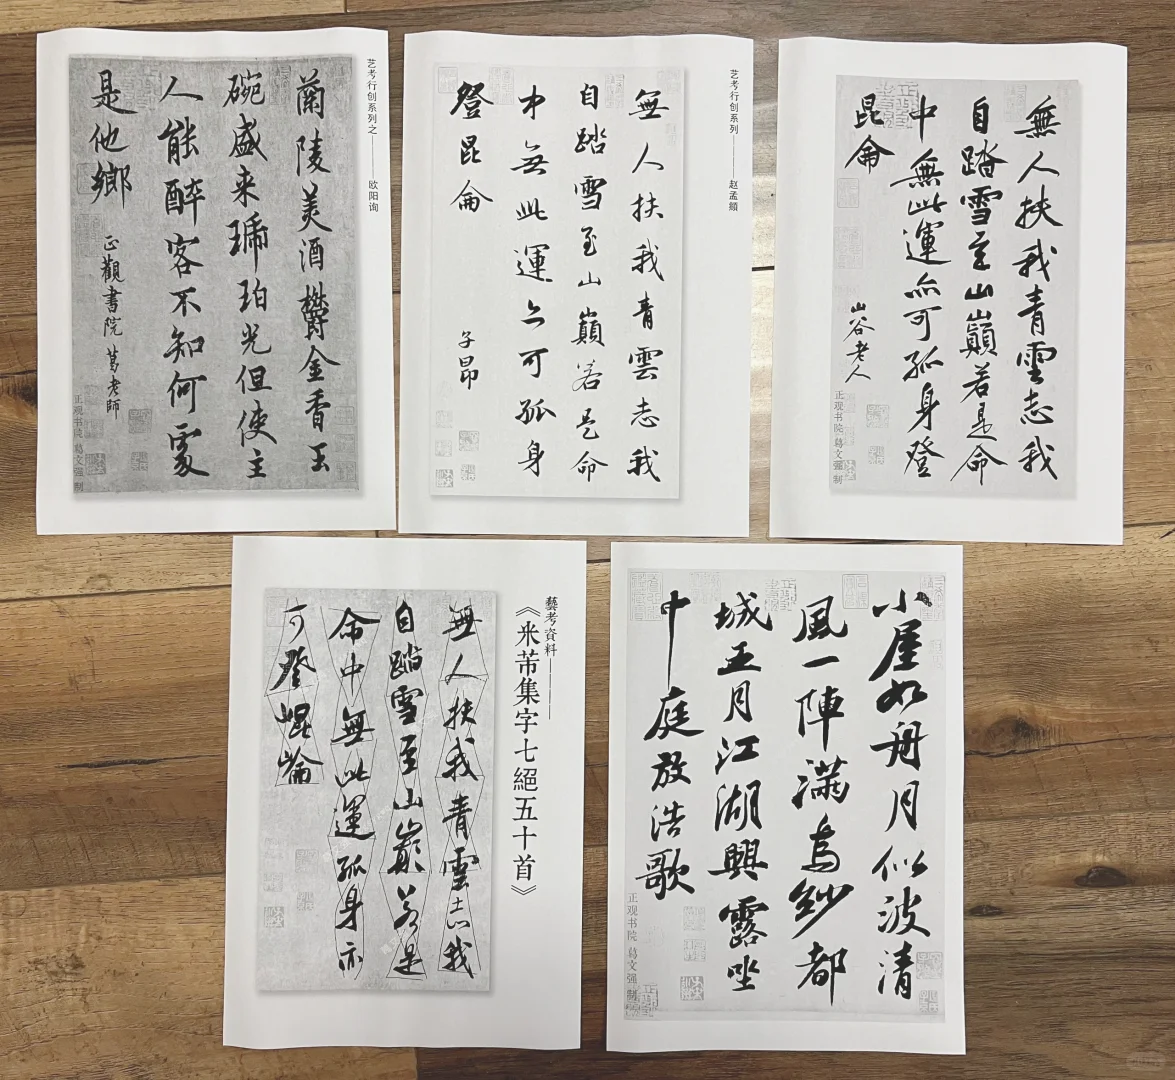 艺考行创系列之——欧阳询
蘭陵美酒欝金香玉
碗盛来琥珀光但使主
人能醉客不知何處
是他鄉
正觀書院 葛老師
正观书院 葛文强 制
艺考行创系列——赵孟頫
無人扶我青雲志我
自踏雪至山巔若是命
中無此運亦可孤身
登昆侖
子昂
無人扶我青雲志我
自踏雪至山巔若是命
中無此運亦可孤身登
昆侖
山谷老人
正观书院 葛文强 制
藝考資料——
《米芾集字七絕五十首》
無人扶我青雲志我
自踏雪至山巔若是
命中無此運孤身亦
可登崐崘
小屋如舟月似波清
風一陣滿烏紗都
城五月江湖興露坐
中庭放浩歌
正观书院 葛文强 制